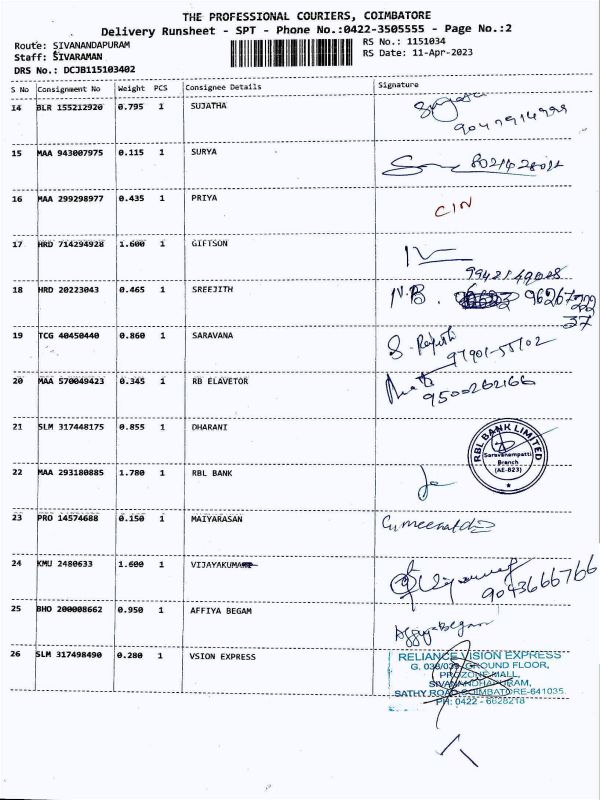 THE PROFESSIONAL COURIERS, COIMBATORE
Delivery Runsheet - SPT - Phone No.:0422-3505555 - Page No.:2
Route: SIVANANDAPURAM RS No.: 1151034
Staff: SIVARAMAN RS Date: 11-Apr-2023
DRS No.: DCJB115103402
S No Consignment No Weight PCS Consignee Details Signature
14 BLR 155212920 0.795 1 SUJATHA
15 MAA 943007975 0.115 1 SURYA
16 MAA 299298977 0.435 1 PRIYA CIN
17 HRD 714294928 1.600 1 GIFTSON
18 HRD 20223043 0.465 1 SREEJITH N.B.
19 TCG 40450440 0.860 1 SARAVANA 97901-55702
20 MAA 570049423 0.345 1 RB ELAVETOR 9500262166
21 SLM 317448175 0.855 1 DHARANI
RBL BANK LIMITED
Saravanampatti
Branch
(AE-823)
22 MAA 293180885 1.780 1 RBL BANK
23 PRO 14574688 0.150 1 MAIYARASAN
24 KMU 2480633 1.600 1 VIJAYAKUMAR 9043666766
25 BHO 200008662 0.950 1 AFFIYA BEGAM Affiya Begam
26 SLM 317498490 0.280 1 VSION EXPRESS
RELIANCE VISION EXPRESS
G. 038/039, GROUND FLOOR,
PROZONE MALL,
SIVANANDHAPURAM,
SATHY ROAD, COIMBATORE-641035.
PH: 0422 - 6628218